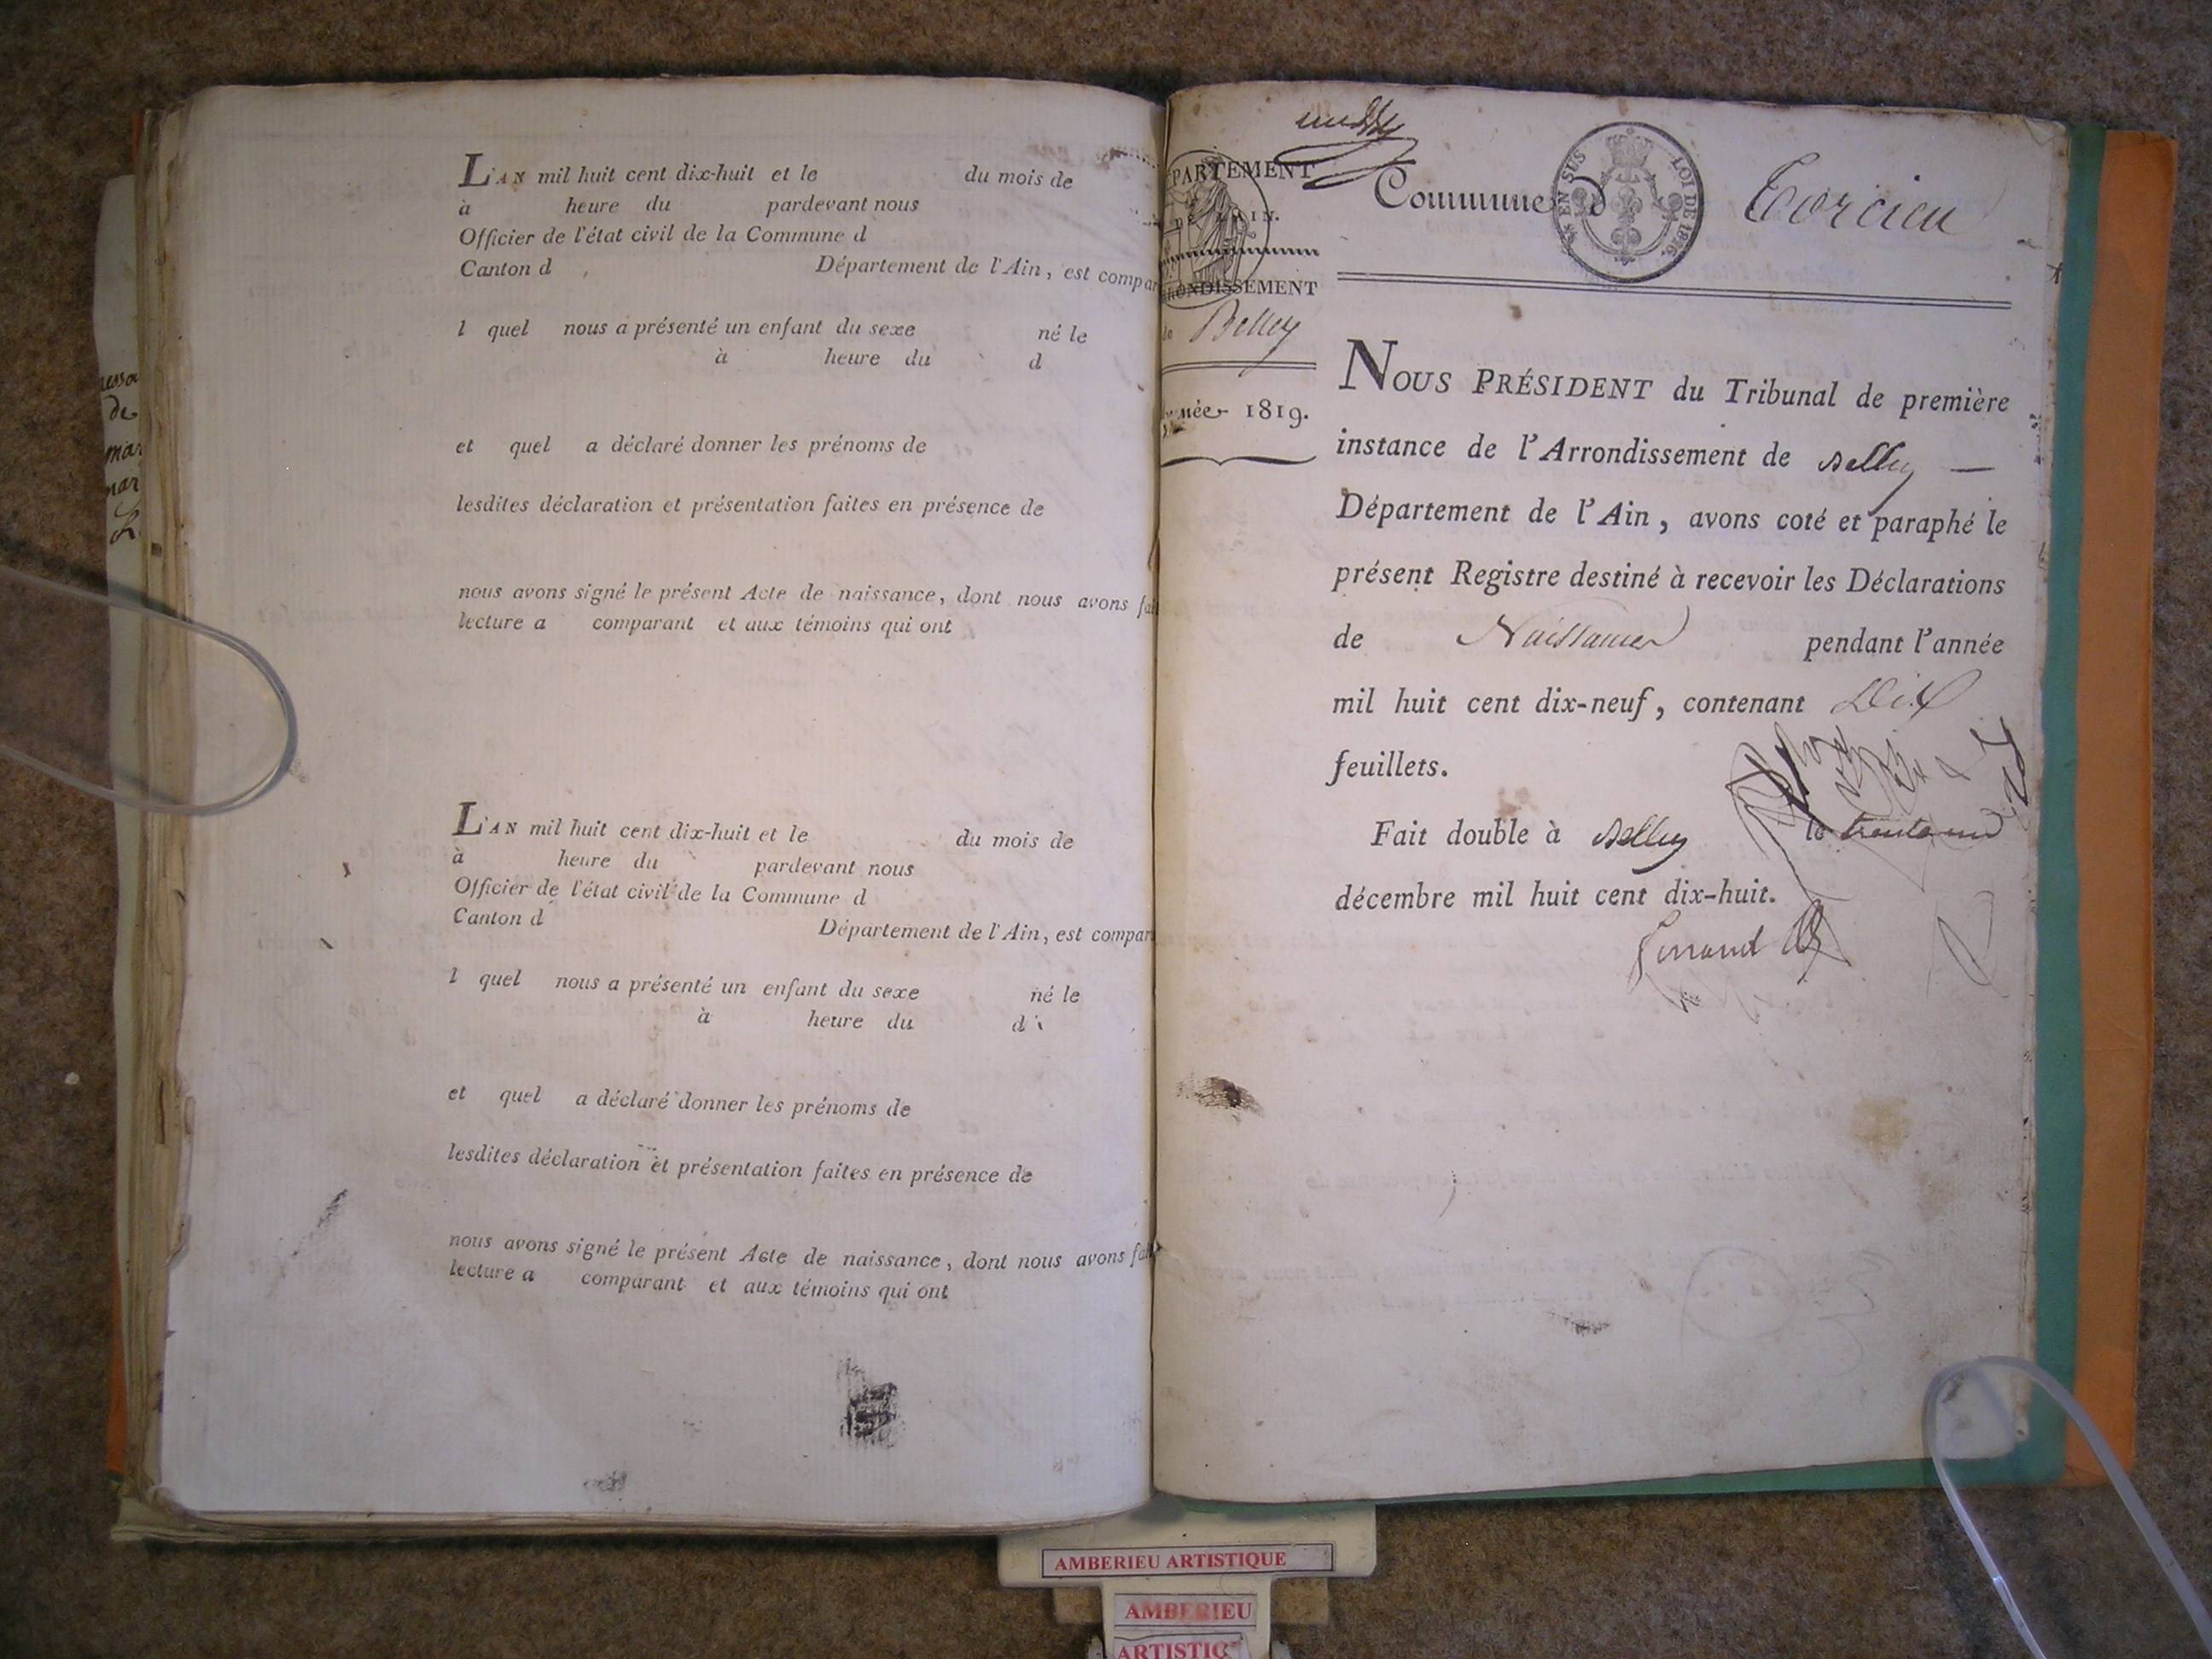 L'AN mil huit cent dix-huit et le du mois de
à heure du pardevant nous
Officier de l'état civil de la Commune d
Canton d , Département de l'Ain, est compar
l quel nous a présenté un enfant du sexe né le
à heure du d
et quel a déclaré donner les prénoms de
lesdites déclaration et présentation faites en présence de
nous avons signé le présent Acte de naissance, dont nous avons fai
lecture a comparant et aux témoins qui ont
L'AN mil huit cent dix-huit et le du mois de
à heure du pardevant nous
Officier de l'état civil de la Commune d
Canton d Département de l'Ain, est compar
l quel nous a présenté un enfant du sexe né le
à heure du d
et quel a déclaré donner les prénoms de
lesdites déclaration et présentation faites en présence de
nous avons signé le présent Acte de naissance, dont nous avons fai
lecture a comparant et aux témoins qui ont
de
mar
PARTEMENT
DE L'AIN.
RONDISSEMENT
de Belley
née 1819.
Commune d Torcieu
EN SUS LOI DE 1816.
NOUS PRÉSIDENT du Tribunal de première
instance de l'Arrondissement de Belley —
Département de l'Ain, avons coté et paraphé le
présent Registre destiné à recevoir les Déclarations
de Naissances pendant l'année
mil huit cent dix-neuf, contenant Dix
feuillets.
Fait double à Belley le trente un
décembre mil huit cent dix-huit.
AMBERIEU ARTISTIQUE
AMBERIEU
ARTISTIQ